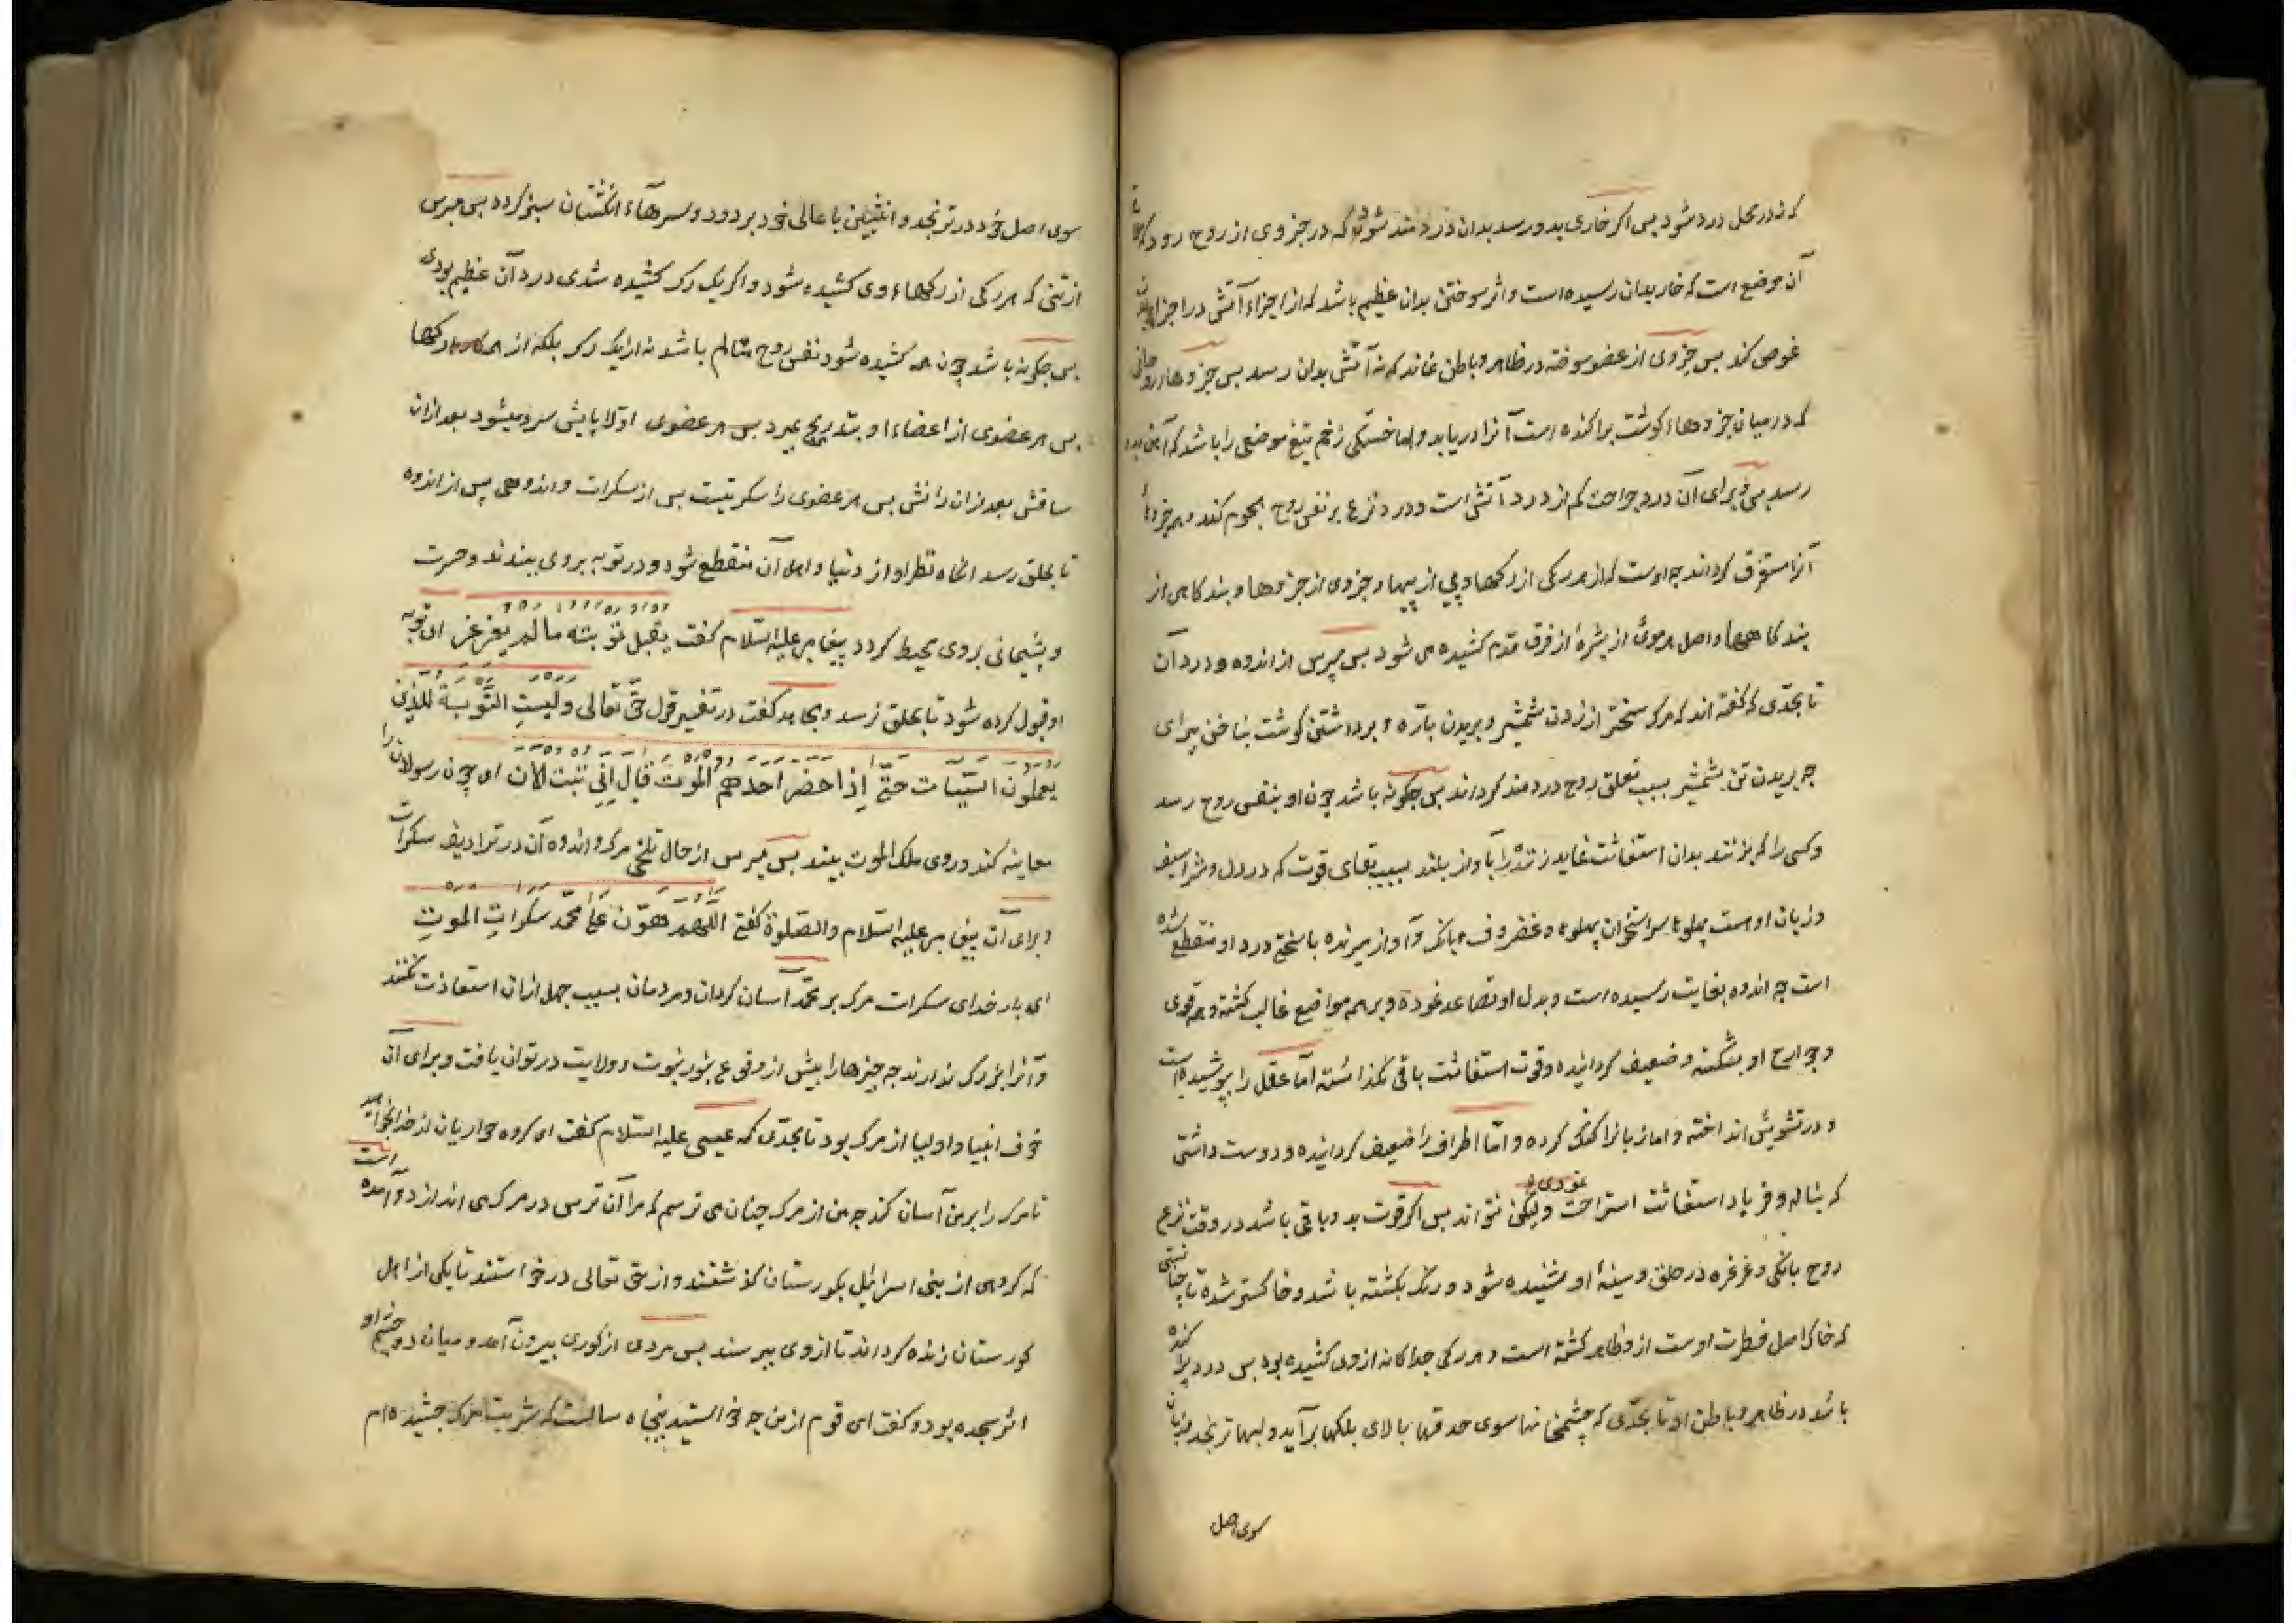 که در محل درد شود بس اکر خاری بدو رسد بدان درد مند شود که در جزوی از روح رود که
آن موضع است که خار بدان رسیده است و اثر سوختن بدان عظیم باشد که از اجزاء آتش در اجزاء
غوص کند بس جزوی از عضو سوخته در ظاهر و باطن نماند که نه آتش بدان رسد بس جزوهاء روحانی
که در میان جزوهاء کوشت براکنده است آنرا دریابد و اما خستکی زخم تیغ موضعی را باشد که آهن بدو
رسد بس برای آن درد جراحت کم از درد آتش است و درد نزع بر نفس روح هجوم کند و همه جزوهاء
آنرا مستغرق کرداند چه اوست که از هر رکی از رکها و پی از پیها و جزوی از جزوها و بندکاهی از
بندکاهها و اصل هر موئ از بشرهٔ از فرق تا قدم کشیده می شود بس مپرس از اندوه و درد آن
تا بحدّی که کفته اند که مرک سختر از زدن شمشیر و بریدن بارّه و برداشتن کوشت بناخن پیرای
چه بریدن تن بشمشیر بسبب تعلق روح دردمند کرداند بس چکونه باشد چون او بنفس روح رسد
و کسی را که بزنند بدان استغاثت نماید زننده را بآواز بلند بسبب بقای قوت که در دل و شراسیف
و زبان اوست پهلوها سر استخوان پهلوها و غضروف بانک و آواز میرنده با سختی درد او منقطع شده
است چه اندوه بغایت رسیده است و بدل او تصاعد نموده و بر همه مواضع غالب کشته و همه قوی
و جوارح او بشکسته و ضعیف کردانیده و قوت استغاثت باقی نکذاشته امّا عقل را بپوشیده است
و در تشویش انداخته و اما زبانرا کنک کرده و امّا اطراف را ضعیف کردانیده و دوست داشتی
که بناله و فریاد استغاثت استراحت نمودی و لیکن نتواند بس اکر قوت بدو باقی باشد در وقت نزع
روح بانکی و غرغره در حلق و سینهٔ او شنیده شود و رنک بکشته باشد و خاکستر شده تا چنانستی
که خاک اصل فطرت اوست از و ظاهر کشته است و هر رکی جداکانه از وی کشیده بود بس درد پراکنده
باشد در ظاهر و باطن او تا بحدّی که چشمخانها سوی حدقها بالای بلکها برآید و لبها ترنجد و زبان
سوی اصل
سوی اصل خود در ترنجد و انثیین با عالی خود بر دود و سرهآء انکشتان سبز کردد بس مپرس
از تنی که هر رکی از رکهاء وی کشیده شود و اکر یک رک کشیده شدی درد آن عظیم بودی
بس چکونه باشد چون همه کشیده شود نفس روح متالم باشد نه از یک رک بلکه از همه رکها
بس هر عضوی از اعضاء او بتدریج بمیرد بس هر عضوی اوّلا پایش سرد میشود بعد ازان
ساقش بعد ازان رانش بس هر عضوی را سکرتیست بس از سکرات و اندوهی پس از اندوه
تا بحلق رسد انکاه نظر او از دنیا و اهل آن منقطع شود و در توبه بروی ببندند و حسرت
و بشیمانی بروی محیط کردد پیغامبر علیه السّلام کفت یقبل توبته ما لم یغرغر ای توبه
او قبول کرده شود تا بحلق نرسد و مجاهد کفت در تفسیر قول حق تعالی ولیست التّوبة للذین
یعملون السّیّات حتّی إذا حضر احدهم الموت قال إنّی تبت الان ای چون رسولان را
معاینه کند و روی ملک الموت ببیند بس مپرس از حال تلخی مرک و اندوه آن در ترادیف سکرات
و برای آن پیغامبر علیه السّلام والصّلوة کفتی اللّهم هوّن علی محمّد سکرات الموت
ای بار خدای سکرات مرک بر محمّد آسان کردان و مردمان بسبب جهل ازان استعاذت نکنند
و آنرا بزرک ندارند چه چیزها را بیش از وقوع بنور نبوت و ولایت در توان یافت و برای آن
خوف انبیا و اولیا از مرک بود تا بحدّی که عیسی علیه السّلام کفت ای کروه حواریان از خدا بخواهید
تا مرک را بر من آسان کند چه من از مرک چنان می ترسم که مرا آن ترس در مرک می اندازد و آمده است
که کروهی از بنی اسرائیل بکورستان کذشتند و از حق تعالی درخواستند تا یکی از اهل
کورستان زنده کرداند تا از وی بپرسند بس مردی از کوری بیرون آمد و میان دو چشم او
اثر سجده بود و کفت ای قوم از من چه خواستید پنجاه سالست که شربت مرک چشیده ام